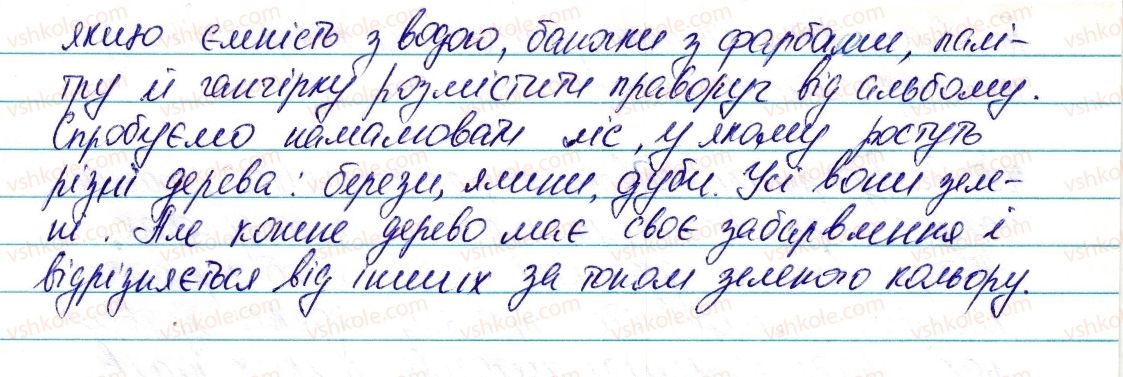 якщо ємність з водою, баночки з фарбами, палі-
тру й ганчірку розмістити праворуч від альбому.
Спробуємо намалювати ліс, у якому ростуть
різні дерева: берези, ялини, дуби. Усі вони зеле-
ні. Але кожне дерево має своє забарвлення і
відрізняється від інших за тоном зеленого кольору.